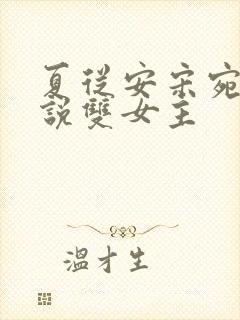 夏從安宋宛
說雙女主
溫才生